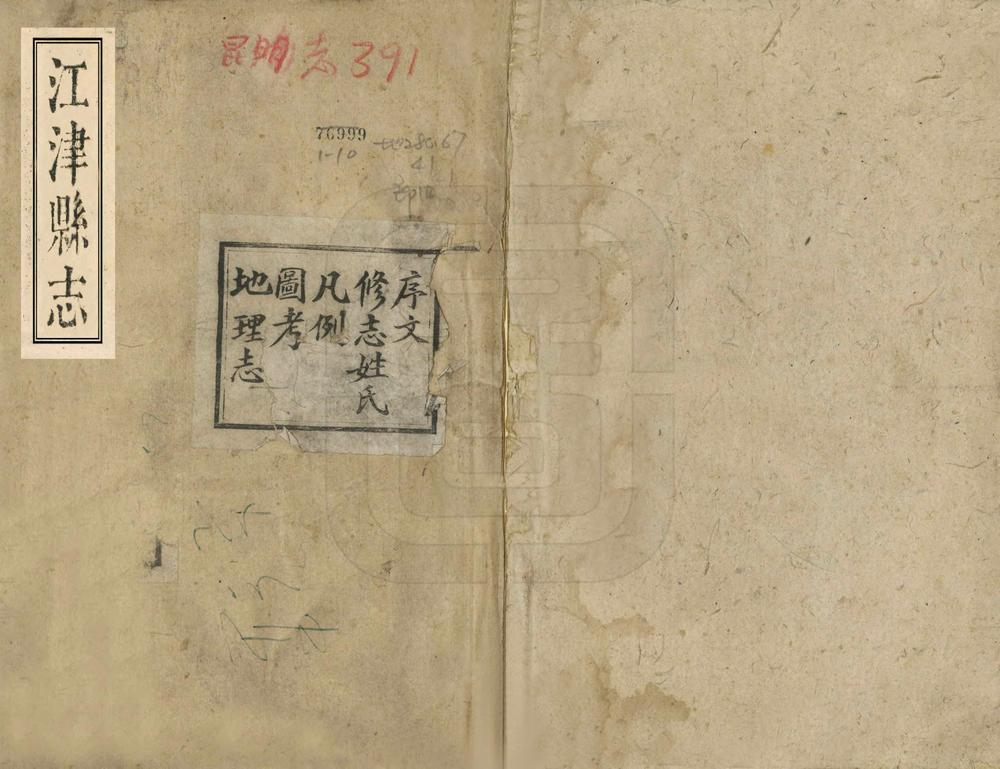 江津縣志
昆明志391
76999
1-10
41
序文
修志姓氏
凡例
圖考
地理志